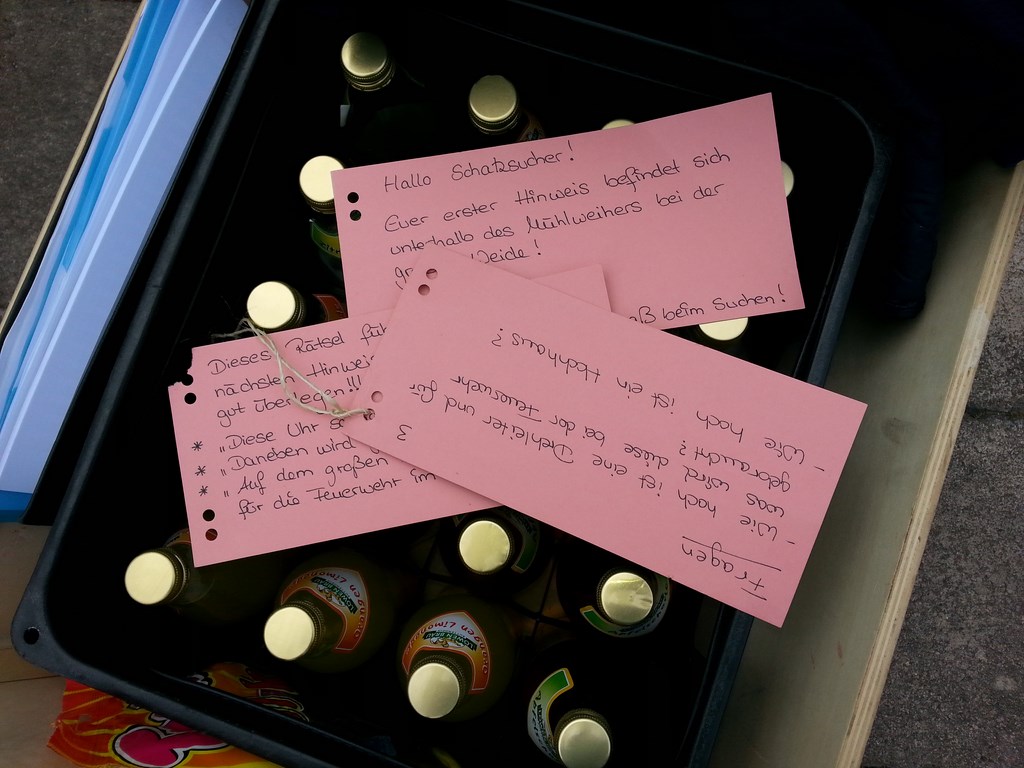 Hallo Schatzsucher!
Euer erster Hinweis befindet sich
unterhalb des Mühlweihers bei der
Weide!
beim Suchen!
Dieses Rätsel
nächsten Hinweis
gut überlegen!!!
* "Diese Uhr
* "Daneben wird
* "Auf dem großen
für die Feuerwehr im
Fragen
- Wie hoch ist eine Drehleiter und für
was wird diese bei der Feuerwehr
gebraucht? 3
- Wie hoch ist ein Hochhaus?